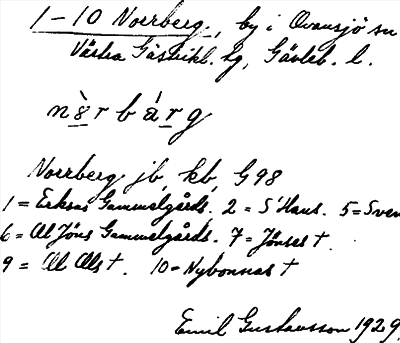 1-10 Norrberg, by i Ovansjö sn
Västra Gästrikl. tg, Gävleb. l.
nè̱r b á̱r g
Norrberg jb, kb, G98
1 = Erksas Gammelgårds. 2 = S'Hans. 5 = Sven
6 = Ol Jöns Gammelgårds. 7 = Jönses †
9 = Ol Ols †. 10 = Nybonnas †
Emil Gustavsson 1929.